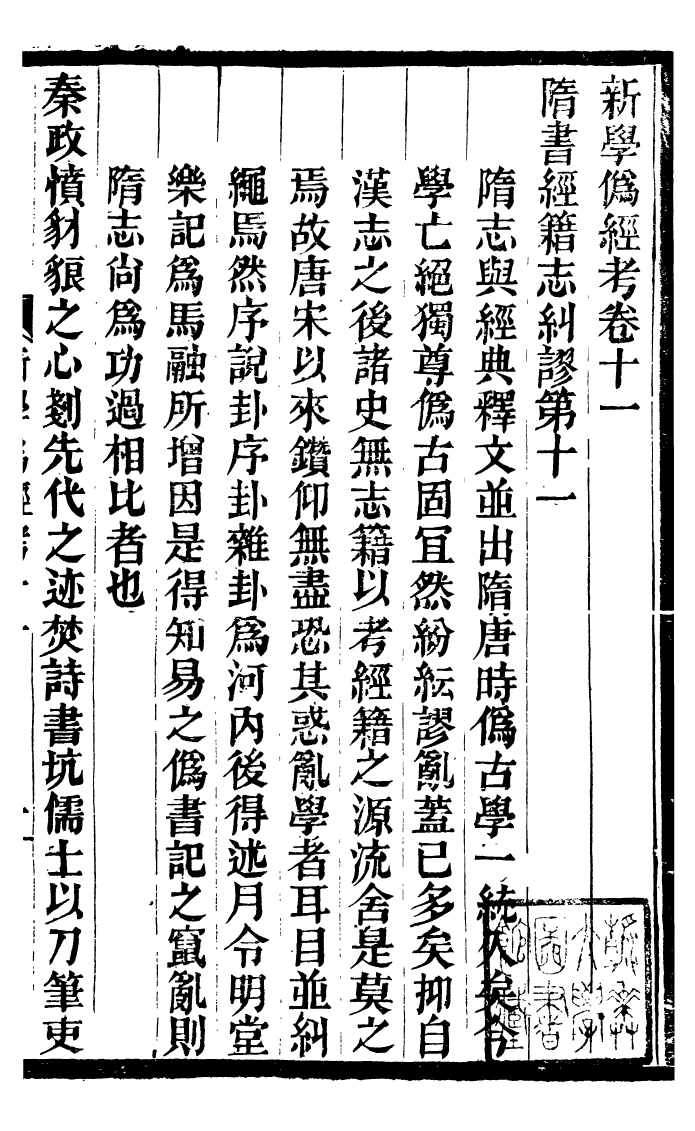 新學僞經考卷十一
隋書經籍志糾謬第十一
隋志與經典釋文並出隋唐時僞古學一統久矣今
學亡絕獨尊僞古固冝然紛紜謬亂蓋已多矣抑自
漢志之後諸史無志籍以考經籍之源流舍是莫之
焉故唐宋以來鑽仰無盡恐其惑亂學者耳目並糾
繩焉然序說卦序卦雜卦爲河內後得述月令明堂
樂記爲馬融所增因是得知易之僞書記之竄亂則
隋志尙爲功過相比者也
秦政憤豺狼之心剗先代之迹焚詩書坑儒士以刀筆吏
新學僞經考十一
一